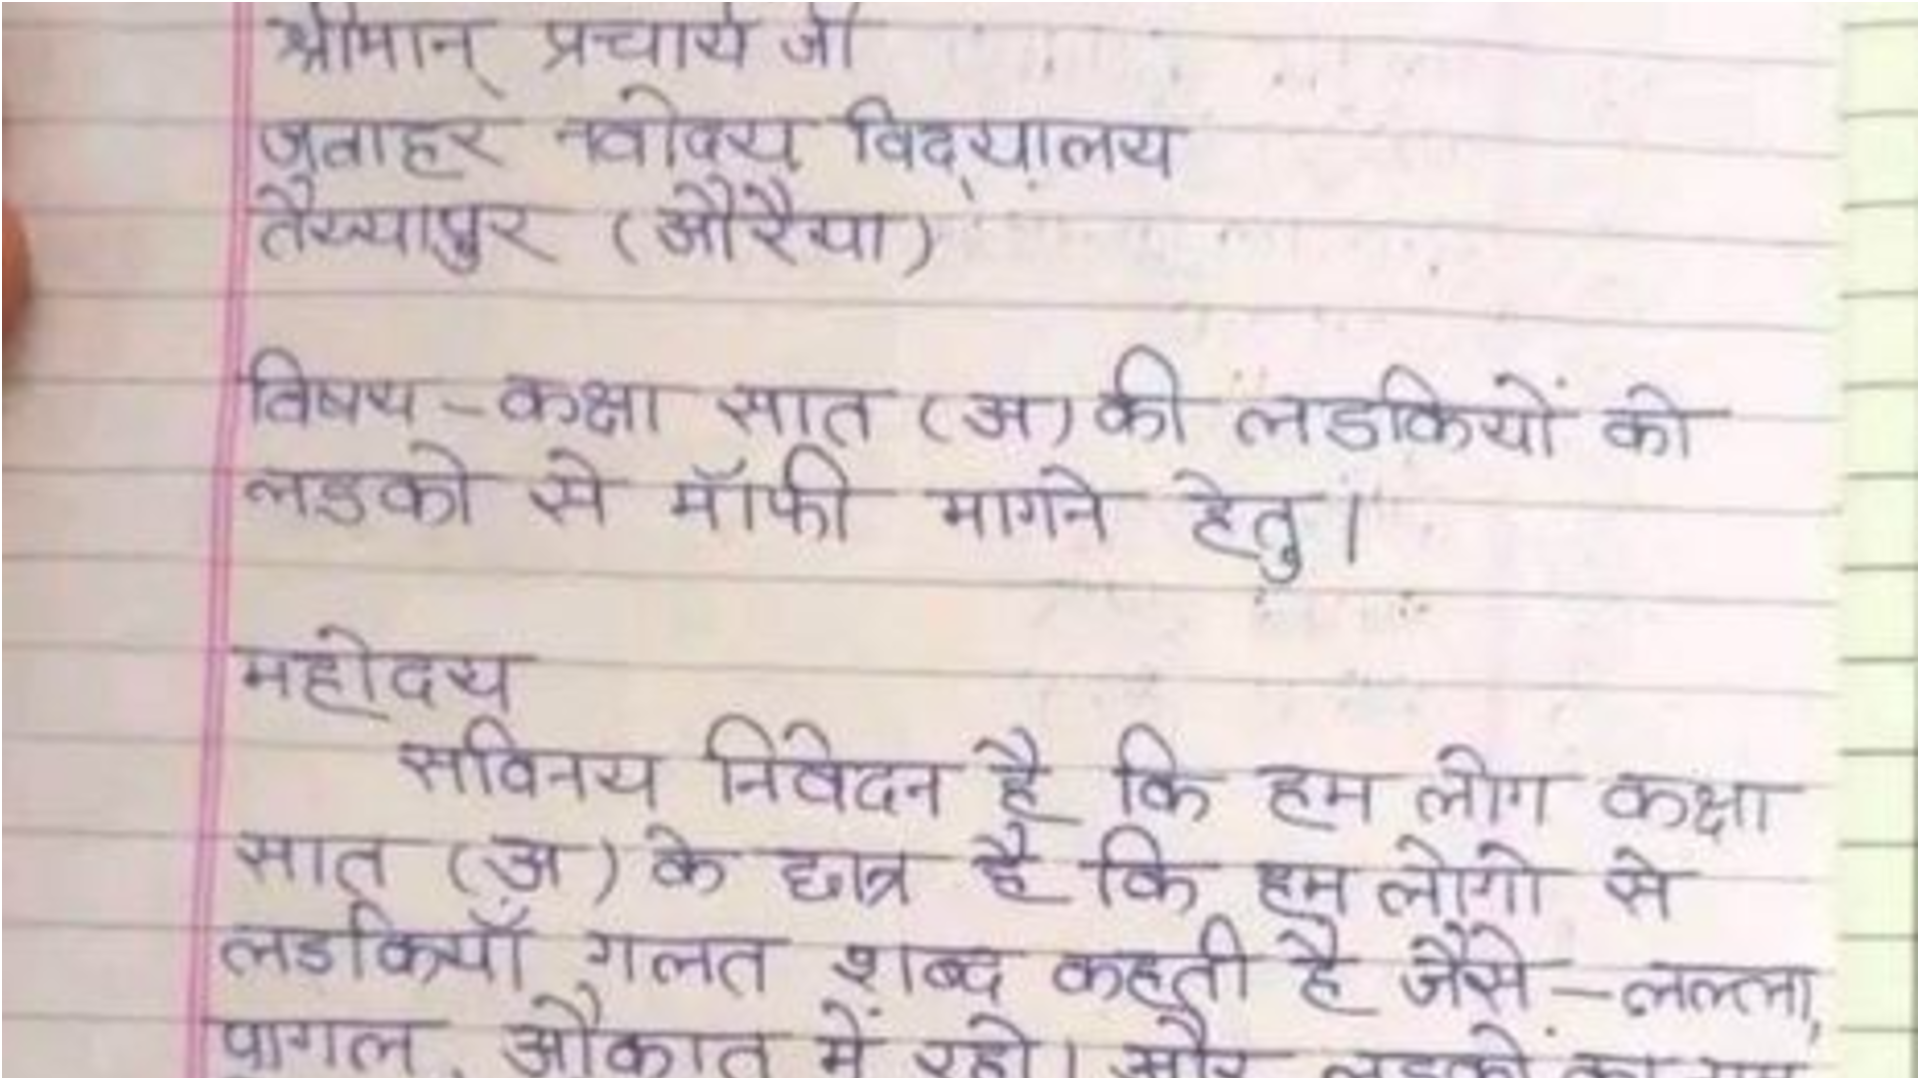 श्रीमान् प्रचार्य जी
जवाहर नवोदय विद्यालय
तैय्यापुर (औरैया)
विषय - कक्षा सात (अ) की लडकियों को
लडको से मॉफी मागने हेतु।
महोदय
सविनय निवेदन है कि हम लोग कक्षा
सात (अ) के छात्र है कि हम लोगो से
लडकियाँ गलत शब्द कहती है जैसे - लल्ला,
पागल, औकात में रहो। और लडको का नाम